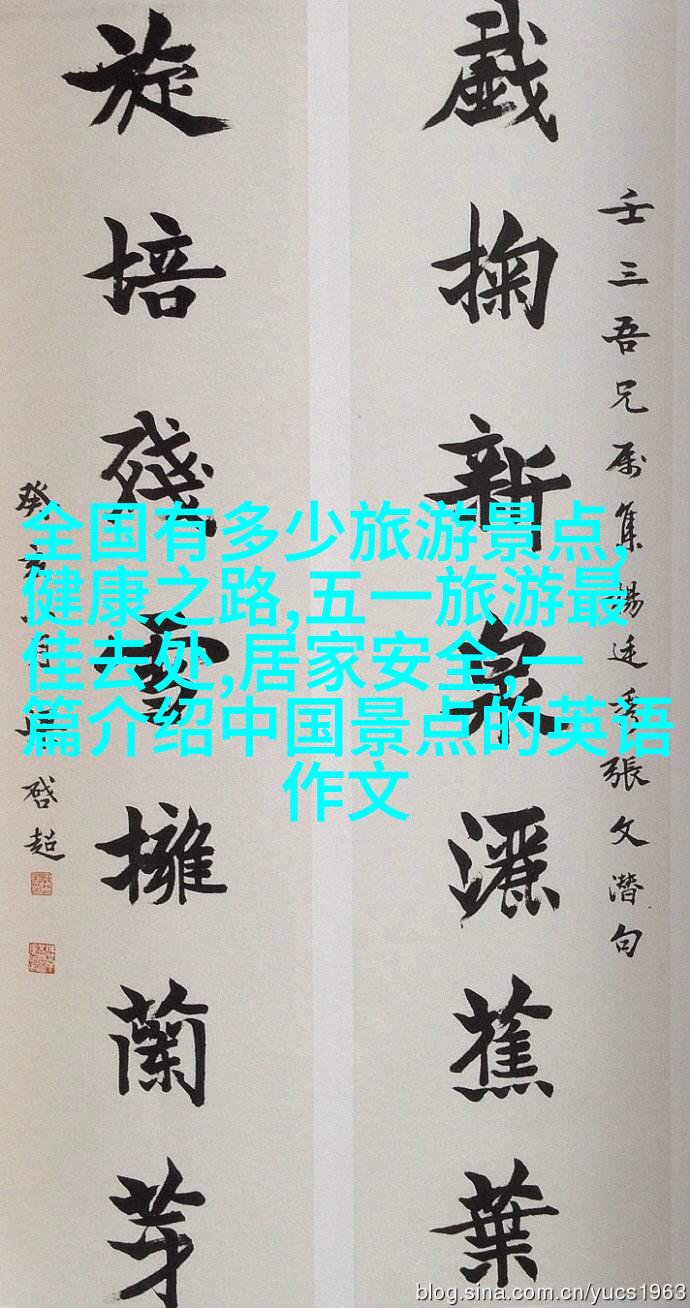 壬三吾兄属集楊廷秀張文潛句
戲掬新泉灑蕉葉
旋培殘雪擁蘭芽
癸亥 月 啓超
全国有多少旅游景点,
健康之路,五一旅游最
佳去处,居家安全,一
篇介绍中国景点的英语
作文
blog.sina.com.cn/yucs1963